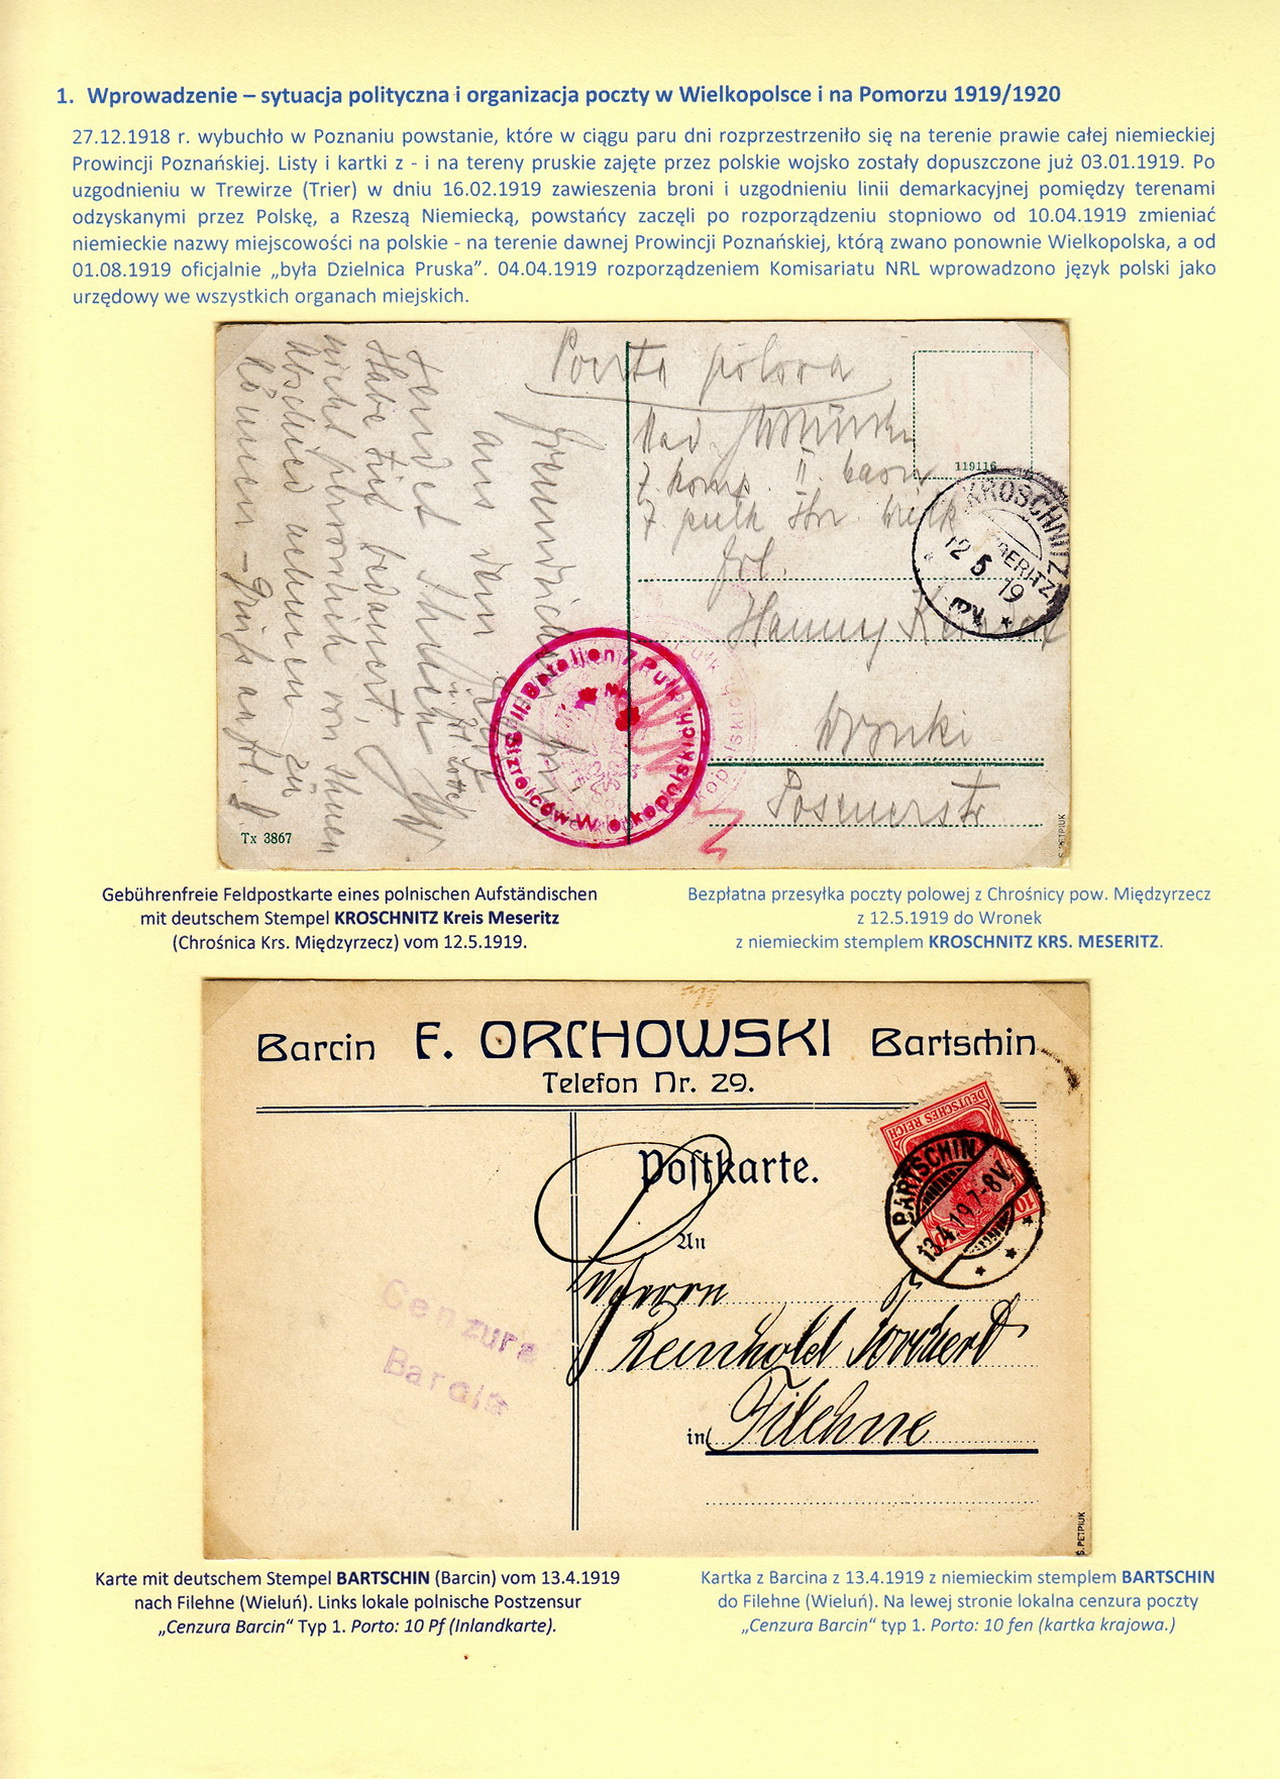 1. Wprowadzenie – sytuacja polityczna i organizacja poczty w Wielkopolsce i na Pomorzu 1919/1920
27.12.1918 r. wybuchło w Poznaniu powstanie, które w ciągu paru dni rozprzestrzeniło się na terenie prawie całej niemieckiej
Prowincji Poznańskiej. Listy i kartki z - i na tereny pruskie zajęte przez polskie wojsko zostały dopuszczone już 03.01.1919. Po
uzgodnieniu w Trewirze (Trier) w dniu 16.02.1919 zawieszenia broni i uzgodnieniu linii demarkacyjnej pomiędzy terenami
odzyskanymi przez Polskę, a Rzeszą Niemiecką, powstańcy zaczęli po rozporządzeniu stopniowo od 10.04.1919 zmieniać
niemieckie nazwy miejscowości na polskie - na terenie dawnej Prowincji Poznańskiej, którą zwano ponownie Wielkopolska, a od
01.08.1919 oficjalnie „była Dzielnica Pruska”. 04.04.1919 rozporządzeniem Komisariatu NRL wprowadzono język polski jako
urzędowy we wszystkich organach miejskich.
polowa
119116
7 komp. II. baon
7. pulk
KROSCHNITZ
MERITZ
12 5 19
Frl.
Hanny
II Bataljon 7 Pułk
Strzelców Wielkopolskich
Wronki
Posenerstr
aus dem
Habe
bedauert,
nicht persönlich von Ihnen
Abschied nehmen zu
können
Tx 3867
S. PETPIUK
Gebührenfreie Feldpostkarte eines polnischen Aufständischen
mit deutschem Stempel KROSCHNITZ Kreis Meseritz
(Chrośnica Krs. Międzyrzecz) vom 12.5.1919.
Bezpłatna przesyłka poczty polowej z Chrośnicy pow. Międzyrzecz
z 12.5.1919 do Wronek
z niemieckim stemplem KROSCHNITZ KRS. MESERITZ.
Barcin F. ORCHOWSKI Bartschin
Telefon Nr. 29.
DEUTSCHES REICH
10
BARTSCHIN
13.4.19.7-8V.
Postkarte.
An
Herrn
Reinhold
in Filehne
Cenzura
Barcin
S. PETPIUK
Karte mit deutschem Stempel BARTSCHIN (Barcin) vom 13.4.1919
nach Filehne (Wieluń). Links lokale polnische Postzensur
„Cenzura Barcin“ Typ 1. Porto: 10 Pf (Inlandkarte).
Kartka z Barcina z 13.4.1919 z niemieckim stemplem BARTSCHIN
do Filehne (Wieluń). Na lewej stronie lokalna cenzura poczty
„Cenzura Barcin“ typ 1. Porto: 10 fen (kartka krajowa.)